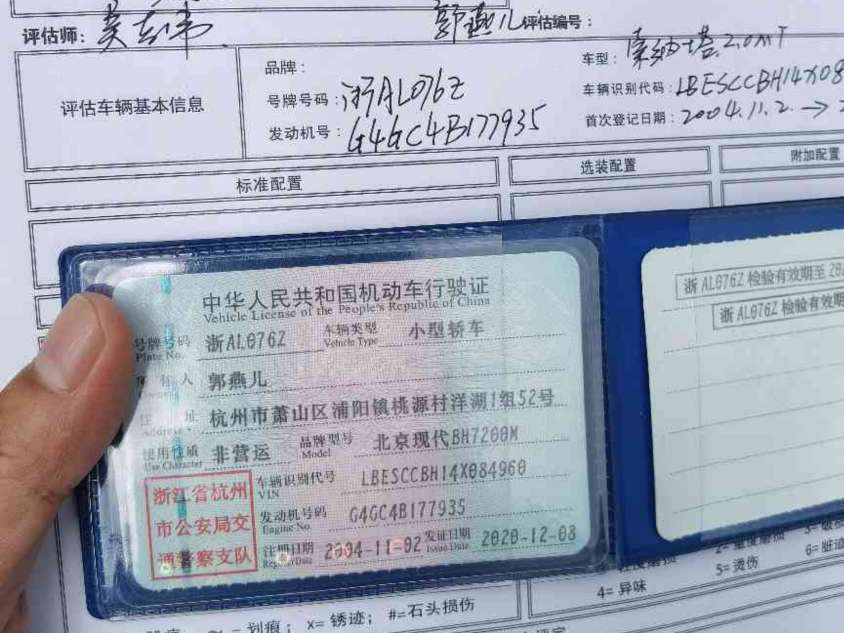 评估师: 郭燕儿 评估编号:
品牌: 车型: 索纳塔 2.0MT
评估车辆基本信息 号牌号码: 浙AL076Z 车辆识别代码: LBESCCBH14X08
发动机号: G4GC4B177935 首次登记日期: 2004.11.2. →
标准配置 选装配置 附加配置
中华人民共和国机动车行驶证
Vehicle License of the People's Republic of China
号牌号码 浙AL076Z 车辆类型 小型轿车
Plate No. Vehicle Type
所有人 郭燕儿
住址 杭州市萧山区浦阳镇桃源村洋湖1组52号
Address
使用性质 非营运 品牌型号 北京现代BH7200M
Use Character Model
车辆识别代号 LBESCCBH14X084960
VIN
发动机号码 G4GC4B177935
Engine No.
注册日期 2004-11-02 发证日期 2020-12-08
Register Date Issue Date
浙江省杭州
市公安局交
通警察支队
浙AL076Z 检验有效期至 20
浙AL076Z 检验有效期
4= 异味 5= 烫伤 6= 脏迹
= 划痕; ×= 锈迹; #=石头损伤